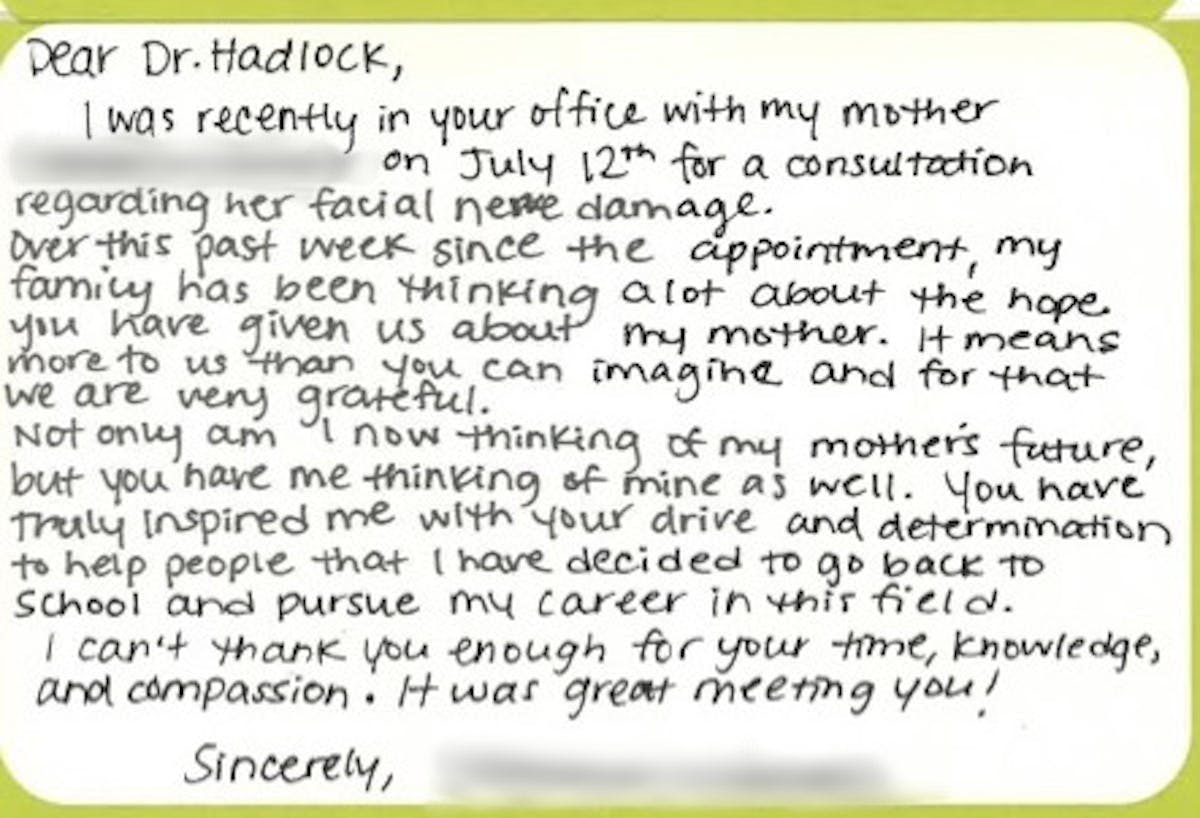 Dear Dr. Hadlock,
I was recently in your office with my mother
on July 12th for a consultation
regarding her facial nerve damage.
Over this past week since the appointment, my
family has been thinking alot about the hope
you have given us about my mother. It means
more to us than you can imagine and for that
we are very grateful.
Not only am I now thinking of my mother's future,
but you have me thinking of mine as well. You have
truly inspired me with your drive and determination
to help people that I have decided to go back to
school and pursue my career in this field.
I can't thank you enough for your time, knowledge,
and compassion. It was great meeting you!
Sincerely,